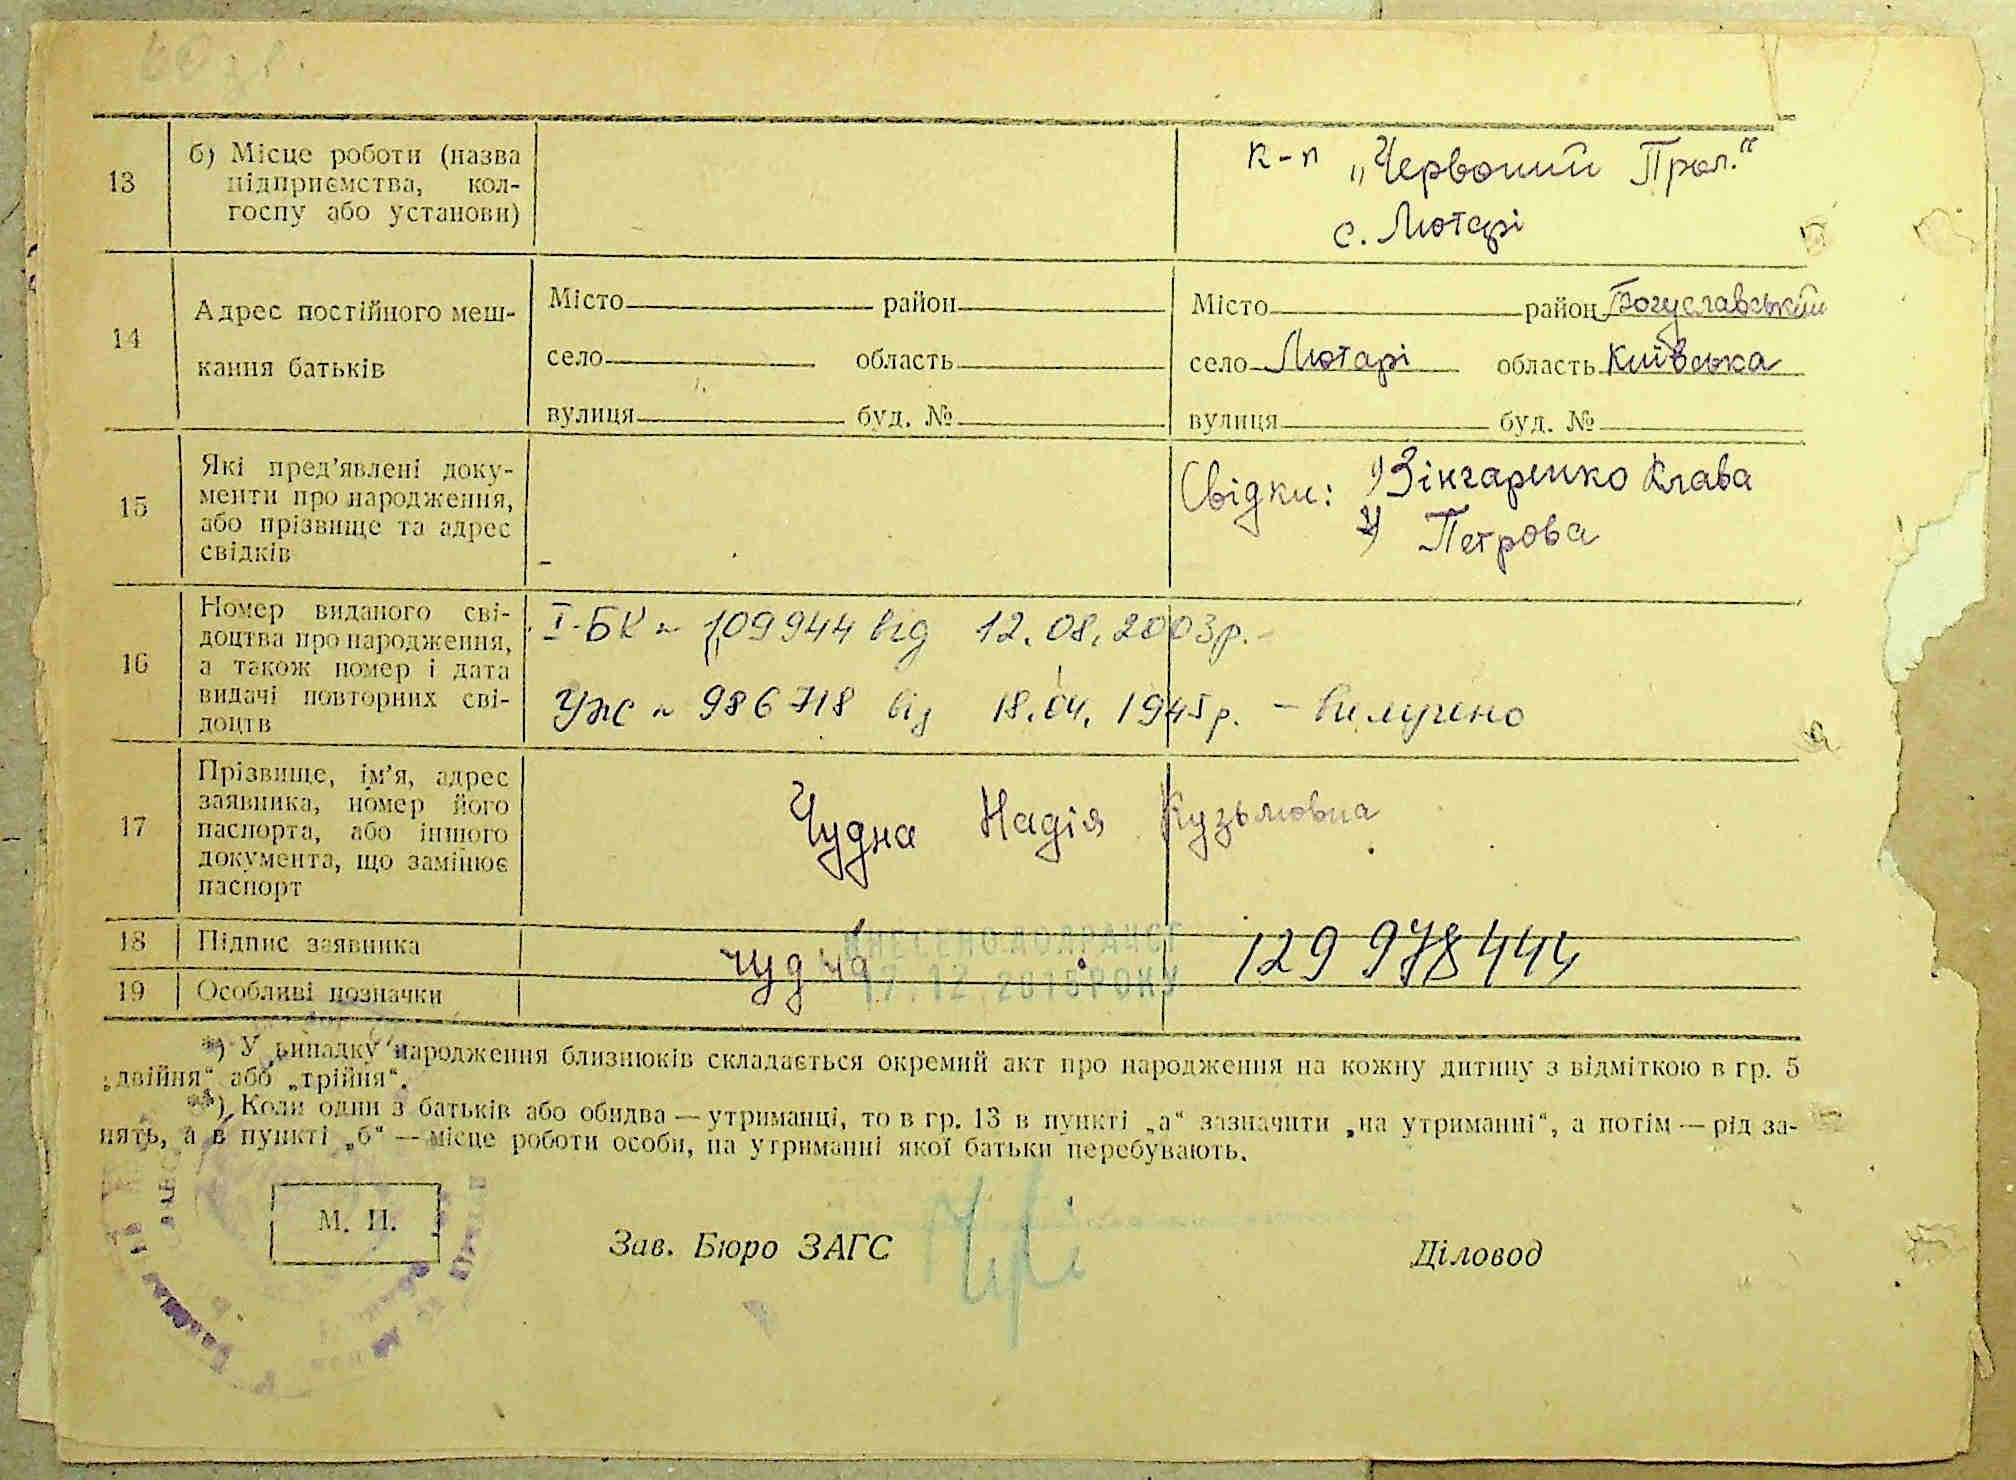 13
б) Місце роботи (назва
підприємства, кол-
госпу або установи)
к-п „Червоний Прол.“
с. Лютарі
14
Адрес постійного меш-
кання батьків
Місто район
село область
вулиця буд. №
Місто район Богуславський
село Лютарі область Київська
вулиця буд. №
15
Які пред’явлені доку-
менти про народження,
або прізвище та адрес
свідків
Свідки: 1) Зінгаренко Клава
2) Петрова
16
Номер виданого сві-
доцтва про народження,
а також номер і дата
видачі повторних сві-
доцтв
I-БК № 109944 від 12.08.2003р.
УЖС № 986718 від 18.04.1945р. – вилучено
17
Прізвище, ім’я, адрес
заявника, номер його
паспорта, або іншого
документа, що замінює
паспорт
Чудна Надія Кузьмовна
18
Підпис заявника
Чудна
ВНЕСЕНО ДО ДРАЦСГ
129 978444
19
Особливі позначки
РОКУ
*) У випадку народження близнюків складається окремий акт про народження на кожну дитину з відміткою в гр. 5
„двійня“ або „трійня“.
**) Коли один з батьків або обидва — утриманці, то в гр. 13 в пункті „а“ зазначити „на утриманні“, а потім — рід за-
нять, а в пункті „б“ — місце роботи особи, на утриманні якої батьки перебувають.
М. П.
Зав. Бюро ЗАГС
Діловод